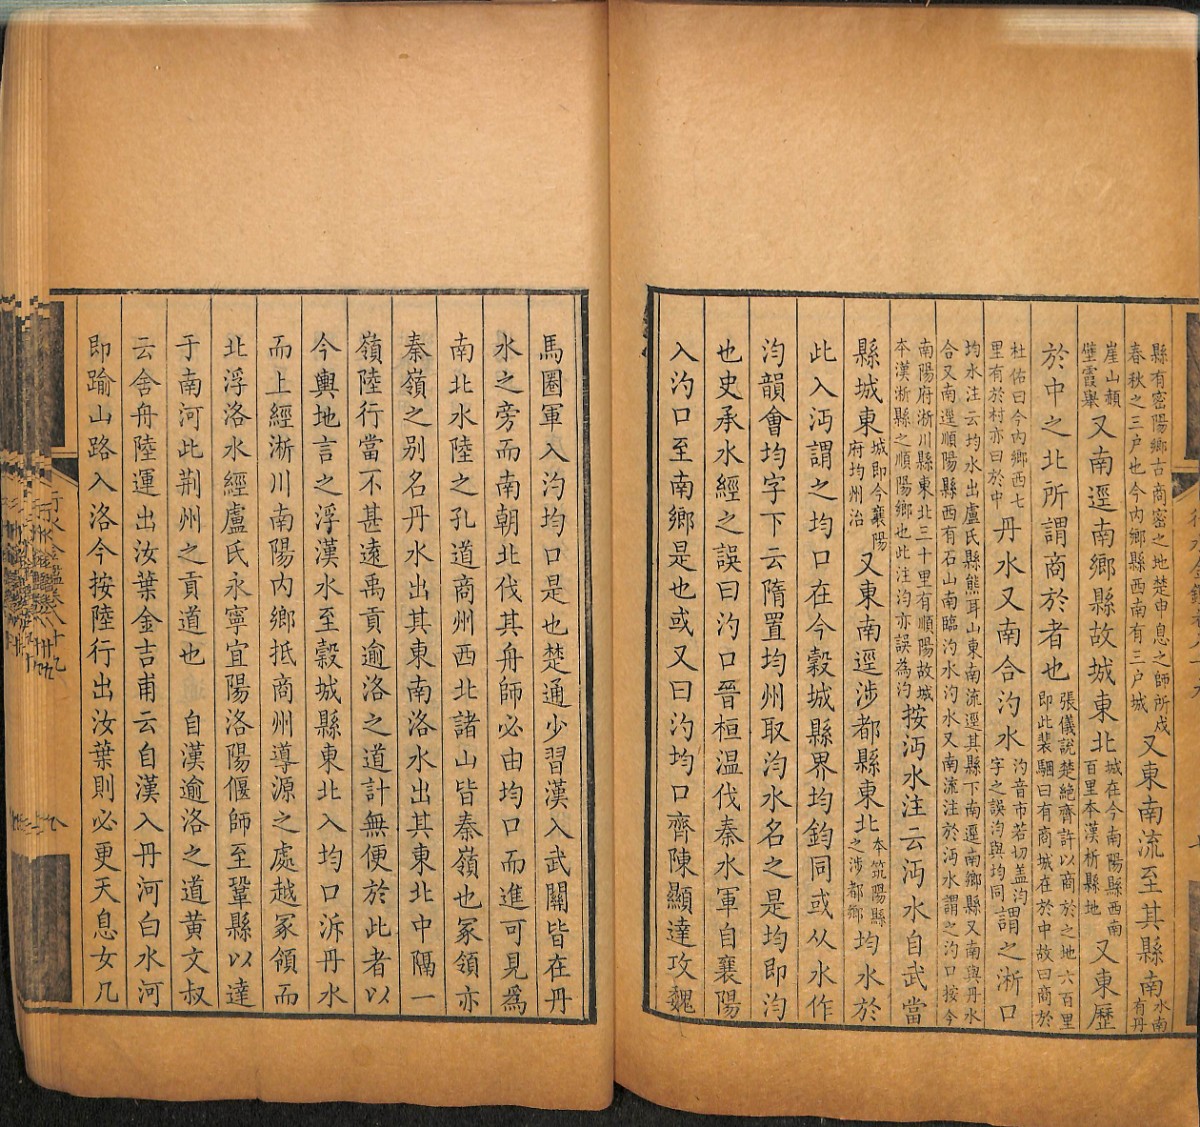 縣有密陽鄉古商密之地楚申息之師所戍春秋之三户也今内鄉縣西南有三户城又東南流至其縣南水南有丹
崖山頳壁霞舉又南逕南鄉縣故城東北城在今南陽縣西南百里本漢析縣地又東歷
於中之北所謂商於者也張儀說楚絶齊許以商於之地六百里即此裴駰曰有商城在於中故曰商於
杜佑曰今内鄉西七里有於村亦曰於中丹水又南合汋水汋音市若切盖汮字之誤汮與均同謂之淅口
均水注云均水出盧氏縣熊耳山東南流逕其縣下南逕南鄉縣又南與丹水合又南逕順陽縣西有石山南臨汋水汋水又南流注於沔水謂之汋口按今
南陽府淅川縣東北三十里有順陽故城本漢淅縣之順陽鄉也此注汮亦誤為汋按沔水注云沔水自武當
縣城東城即今襄陽府均州治又東南逕涉都縣東北本筑陽縣之涉都鄉均水於
此入沔謂之均口在今穀城縣界均鈞同或从水作
汮韻會均字下云隋置均州取汮水名之是均即汮
也史承水經之誤曰汋口晉桓温伐秦水軍自襄陽
入汋口至南鄉是也或又曰汋均口齊陳顯達攻魏
馬圈軍入汮均口是也楚通少習漢入武關皆在丹
水之旁而南朝北伐其舟師必由均口而進可見爲
南北水陸之孔道商州西北諸山皆秦嶺也冢領亦
秦嶺之别名丹水出其東南洛水出其東北中隔一
嶺陸行當不甚遠禹貢逾洛之道計無便於此者以
今輿地言之浮漢水至穀城縣東北入均口泝丹水
而上經淅川南陽内鄉抵商州導源之處越冢領而
北浮洛水經盧氏永寧宜陽洛陽偃師至鞏縣以達
于南河此荆州之貢道也　自漢逾洛之道黄文叔
云舍舟陸運出汝葉金吉甫云自漢入丹河白水河
即踰山路入洛今按陸行出汝葉則必更天息女几